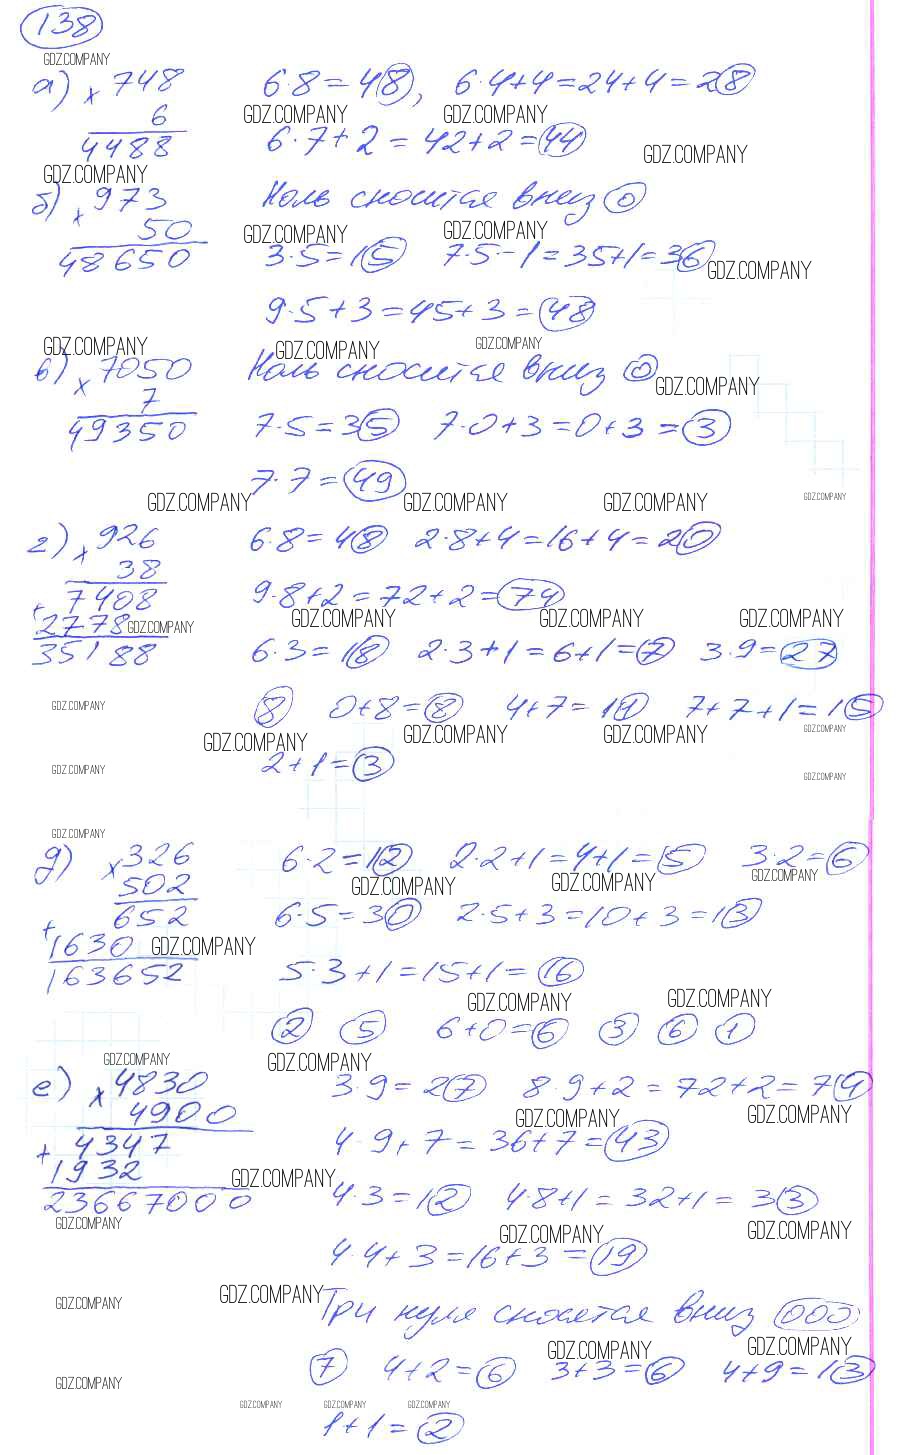 138
GDZ.COMPANY
а) × 748 6·8=48, 6·4+4=24+4=28
6 GDZ.COMPANY GDZ.COMPANY
4488 6·7+2=42+2=44 GDZ.COMPANY
GDZ.COMPANY
б) × 973 Ноль сносится вниз 0
50 GDZ.COMPANY GDZ.COMPANY
48650 3·5=15 7·5-1=35+1=36 GDZ.COMPANY
9·5+3=45+3=48
GDZ.COMPANY GDZ.COMPANY GDZ.COMPANY
в) × 7050 Ноль сносится вниз 0 GDZ.COMPANY
7
49350 7·5=35 7·0+3=0+3=3
7·7=49
GDZ.COMPANY GDZ.COMPANY GDZ.COMPANY GDZ.COMPANY
г) × 926 6·8=48 2·8+4=16+4=20
38
+ 7408 9·8+2=72+2=74
2778 GDZ.COMPANY GDZ.COMPANY GDZ.COMPANY GDZ.COMPANY
35188 6·3=18 2·3+1=6+1=7 3·9=27
GDZ.COMPANY 8 0+8=8 4+7=11 7+7+1=15
GDZ.COMPANY GDZ.COMPANY GDZ.COMPANY GDZ.COMPANY
GDZ.COMPANY 2+1=3 GDZ.COMPANY
GDZ.COMPANY
д) × 326 6·2=12 2·2+1=4+1=5 3·2=6
502 GDZ.COMPANY GDZ.COMPANY GDZ.COMPANY
+ 652 6·5=30 2·5+3=10+3=13
1630 GDZ.COMPANY
163652 5·3+1=15+1=16
GDZ.COMPANY GDZ.COMPANY
2 5 6+0=6 3 6 1
GDZ.COMPANY GDZ.COMPANY
е) × 4830 3·9=27 8·9+2=72+2=74
4900 GDZ.COMPANY GDZ.COMPANY
+ 4347 4·9+7=36+7=43
1932 GDZ.COMPANY
23667000 4·3=12 4·8+1=32+1=33
GDZ.COMPANY GDZ.COMPANY GDZ.COMPANY
4·4+3=16+3=19
GDZ.COMPANY GDZ.COMPANY Три нуля сносятся вниз 000
GDZ.COMPANY GDZ.COMPANY
GDZ.COMPANY 7 4+2=6 3+3=6 4+9=13
GDZ.COMPANY GDZ.COMPANY GDZ.COMPANY
1+1=2